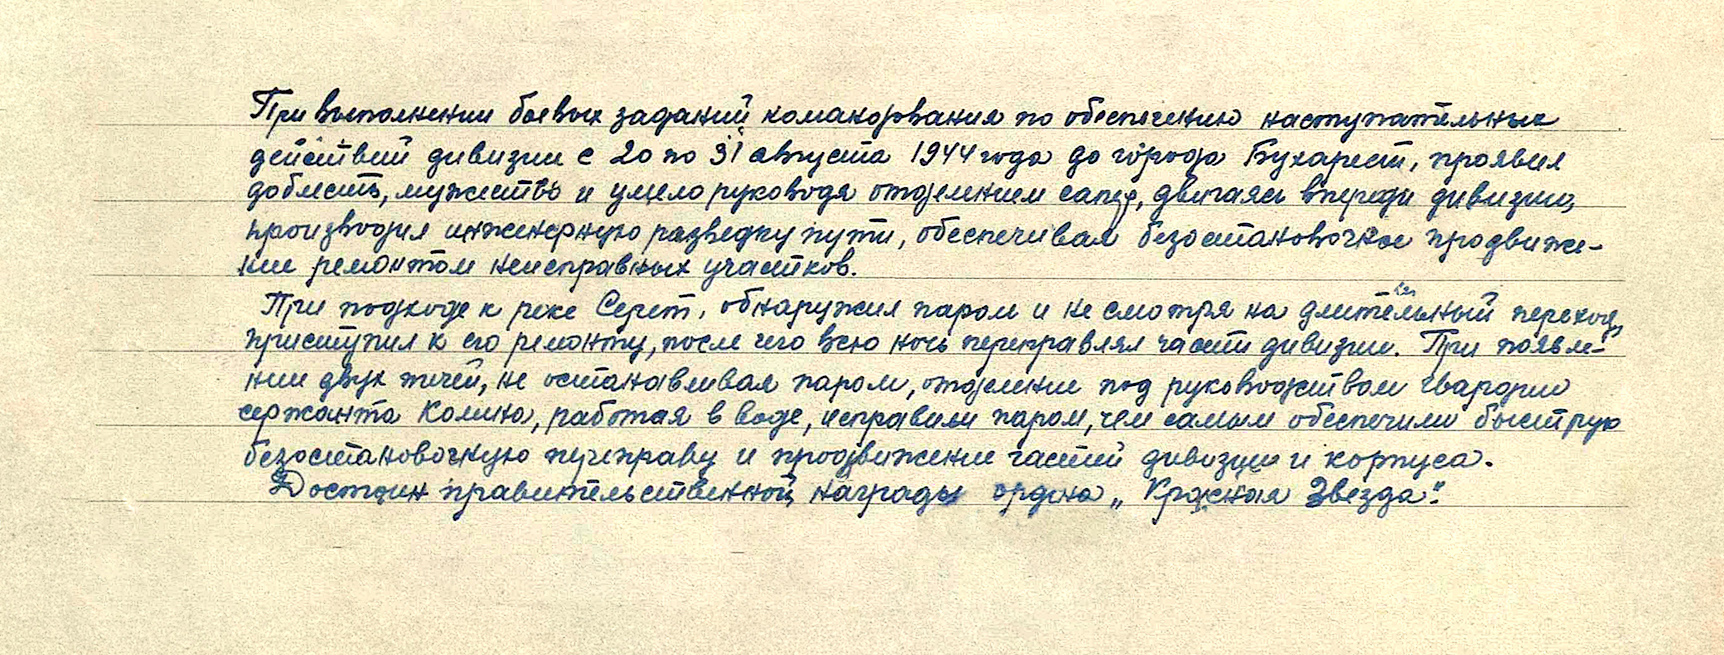 При выполнении боевых заданий командования по обеспечению наступательных
действий дивизии с 20 по 31 августа 1944 года до города Бухарест, проявил
доблесть, мужество и умело руководя отделением сапер, двигаясь впереди дивизии,
производил инженерную разведку пути, обеспечивал безостановочное продвиже-
ние ремонтом неисправных участков.
При подходе к реке Серет, обнаружил паром и не смотря на длительный переход,
приступил к его ремонту, после чего всю ночь переправлял части дивизии. При появле-
нии двух течей, не останавливая паром, отделение под руководством гвардии
сержанта Колию, работая в воде, исправили паром, чем самым обеспечили быструю
безостановочную переправу и продвижение частей дивизии и корпуса.
Достоин правительственной награды ордена „Красная Звезда".